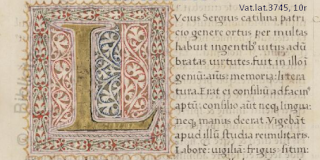 Vat.lat.3745, 10r
L
Vcius Sergius catilina patri
cio genere ortus per multas
habuit ingentibꝰ uitus adũ
bratas uirtutes. fuit in illo i
geniũ. aius: memoria: littera
tura. Erat ei consiliũ ad faciẽ
aptũ: consilio aũt neq, lingua:
neq, manus deerat. Vigebat
apud illũ studia rei militaris.
Labore: uigilia: frigus: fitim: